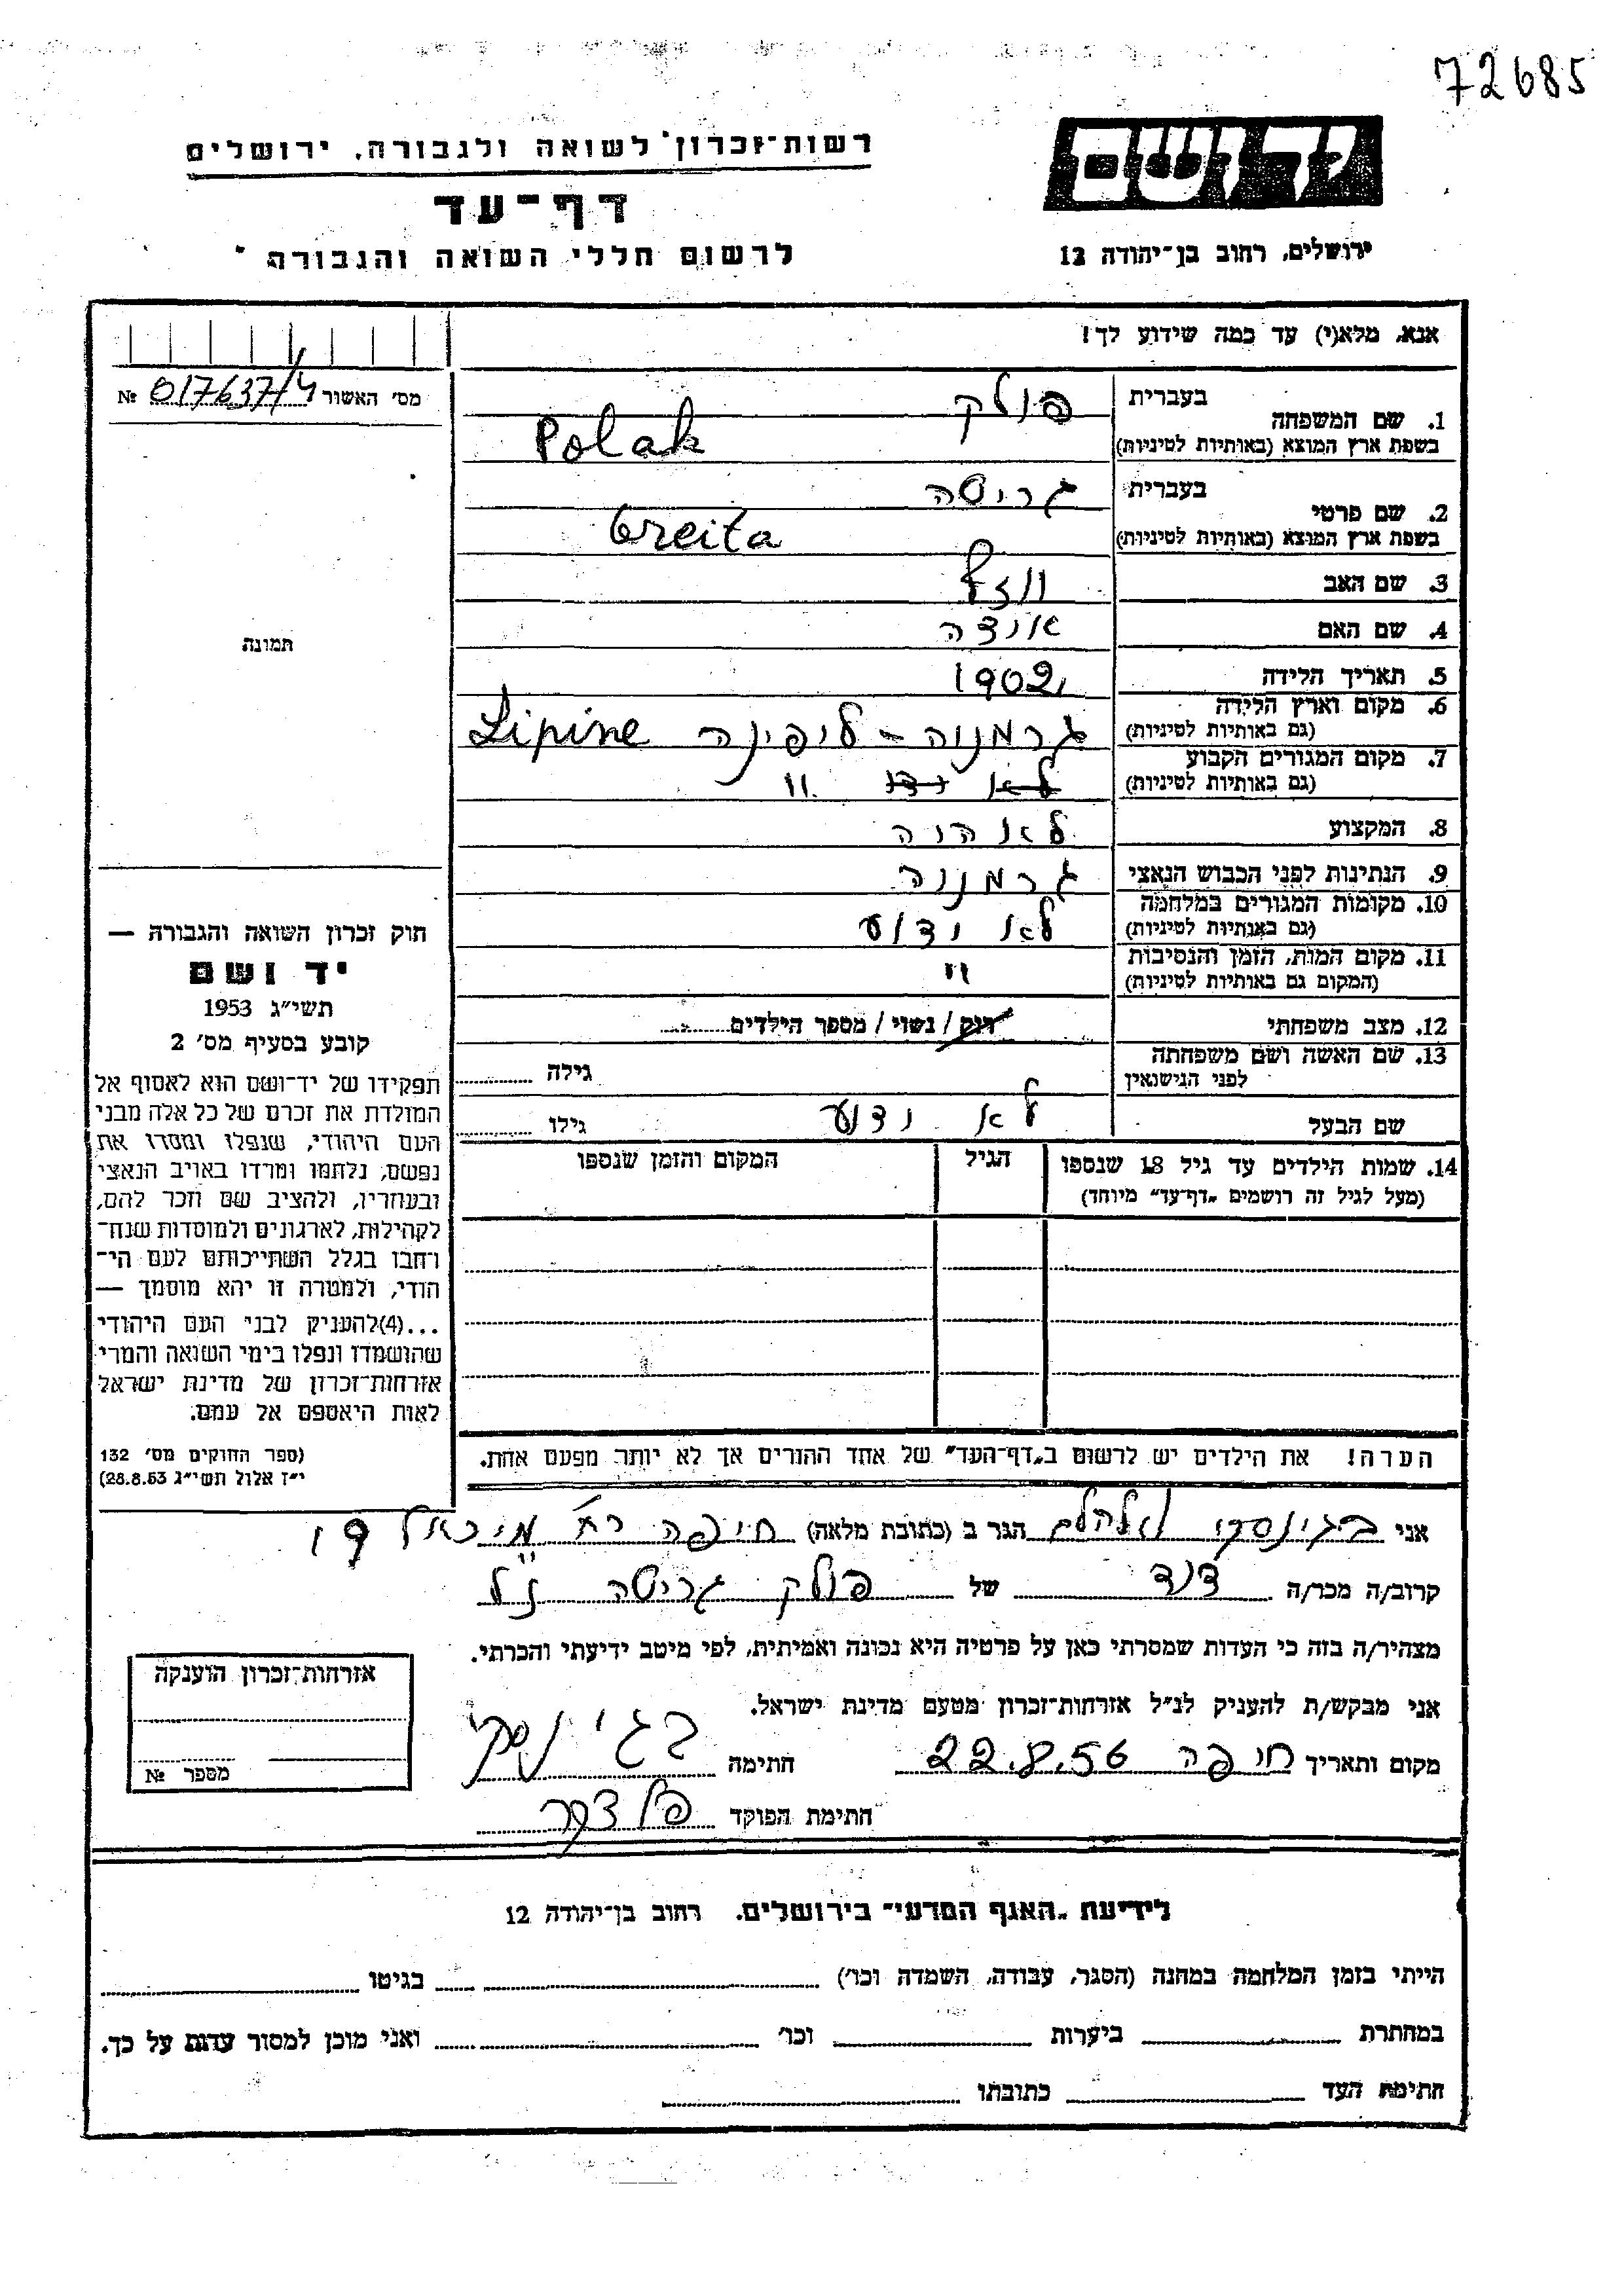 72685
יד ושם
רשות־זכרון לשואה ולגבורה, ירושלים
דף־עד
ירושלים, רחוב בן־יהודה 12
לרשום חללי השואה והגבורה
אנא, מלא(י) עד כמה שידוע לך!
מס' האשור № 017637/4
1. שם המשפחה
בעברית פולק
בשפת ארץ המוצא (באותיות לטיניות) Polak
2. שם פרטי
בעברית גריטה
בשפת ארץ המוצא (באותיות לטיניות) Greita
3. שם האב
4. שם האם
5. תאריך הלידה 1902
6. מקום וארץ הלידה גרמניה - ליפינה Lipine
(גם באותיות לטיניות)
7. מקום המגורים הקבוע
(גם באותיות לטיניות) לא ידו "
8. המקצוע לא היה
9. הנתינות לפני הכבוש הנאצי גרמניה
10. מקומות המגורים במלחמה
(גם באותיות לטיניות) לא ידוע
11. מקום המות, הזמן והנסיבות
(המקום גם באותיות לטיניות) "
12. מצב משפחתי רווק / נשוי / מספר הילדים
13. שם האשה ושם משפחתה
לפני הנישואין גילה
שם הבעל לא ידוע גילו
14. שמות הילדים עד גיל 18 שנספו הגיל המקום והזמן שנספו
(מעל לגיל זה רושמים „דף־עד" מיוחד)
הערה! את הילדים יש לרשום ב„דף־העד" של אחד ההורים אך לא יותר מפעם אחת.
תמונה
חוק זכרון השואה והגבורה —
יד ושם
תשי"ג 1953
קובע בסעיף מס' 2
תפקידו של יד־ושם הוא לאסוף אל
המולדת את זכרם של כל אלה מבני
העם היהודי, שנפלו ומסרו את
נפשם, נלחמו ומרדו באויב הנאצי
ובעוזריו, ולהציב שם וזכר להם,
לקהילות, לארגונים ולמוסדות שנח־
רבו בגלל השתייכותם לעם הי־
הודי, ולמטרה זו יהא מוסמך —
...(4)להעניק לבני העם היהודי
שהושמדו ונפלו בימי השואה והמרי
אזרחות־זכרון של מדינת ישראל
לאות היאספם אל עמם.
(ספר החוקים מס' 132
י"ז אלול תשי"ג 28.8.53)
אני בגינסקי הגר ב (כתובת מלאה) חיפה רח' מיכאל 19
קרוב/ה מכר/ה דוד של פולק גריטה ז"ל
מצהיר/ה בזה כי העדות שמסרתי כאן על פרטיה היא נכונה ואמיתית, לפי מיטב ידיעתי והכרתי.
אני מבקש/ת להעניק לנ"ל אזרחות־זכרון מטעם מדינת ישראל.
מקום ותאריך חיפה 22.8.56 חתימה בגינסקי
חתימת הפוקד
אזרחות־זכרון הוענקה
מספר №
לידיעת „האגף המדעי" בירושלים, רחוב בן־יהודה 12
הייתי בזמן המלחמה במחנה (הסגר, עבודה, השמדה וכו') בגיטו
במחתרת ביערות וכו' ואני מוכן למסור עדות על כך.
חתימת העד כתובתו